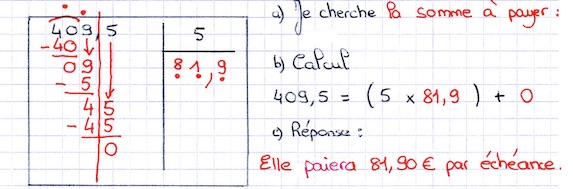 409,5 5
-40 81,9
09
-5
45
-45
0
a) Je cherche la somme à payer :
b) Calcul
409,5 = (5 x 81,9) + 0
c) Réponse :
Elle paiera 81,90 € par échéance.